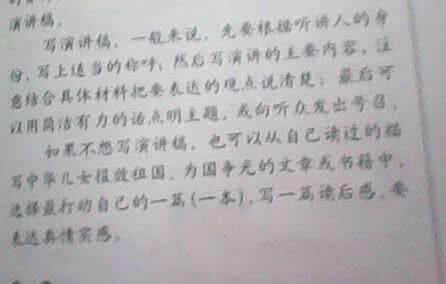 演讲稿。
写演讲稿，一般来说，先要根据听讲人的身
份，写上适当的称呼；然后写演讲的主要内容，注
意结合具体材料把要表达的观点说清楚；最后可
以用简洁有力的话点明主题，或向听众发出号召。
如果不想写演讲稿，也可以从自己读过的描
写中华儿女报效祖国、为国争光的文章或书籍中，
选择最打动自己的一篇(一本)，写一篇读后感，要
表达真情实感。